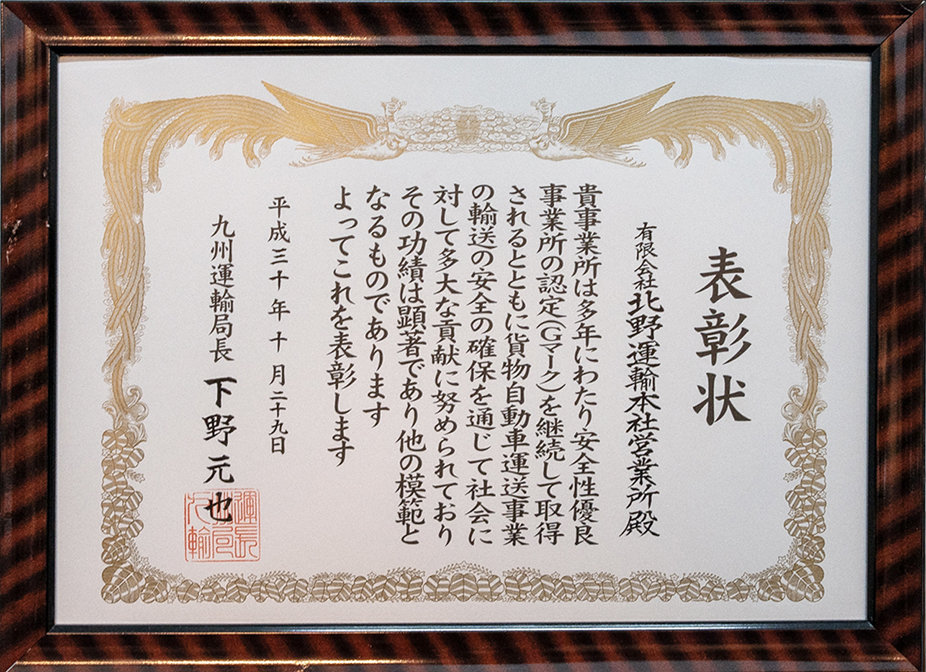 表彰状
有限会社北野運輸本社営業所殿
貴事業所は多年にわたり安全性優良
事業所の認定(Gマーク)を継続して取得
されるとともに貨物自動車運送事業
の輸送の安全の確保を通じて社会に
対して多大な貢献に努められており
その功績は顕著であり他の模範と
なるものであります
よってこれを表彰します
平成三十年十月二十九日
九州運輸局長 下野元也